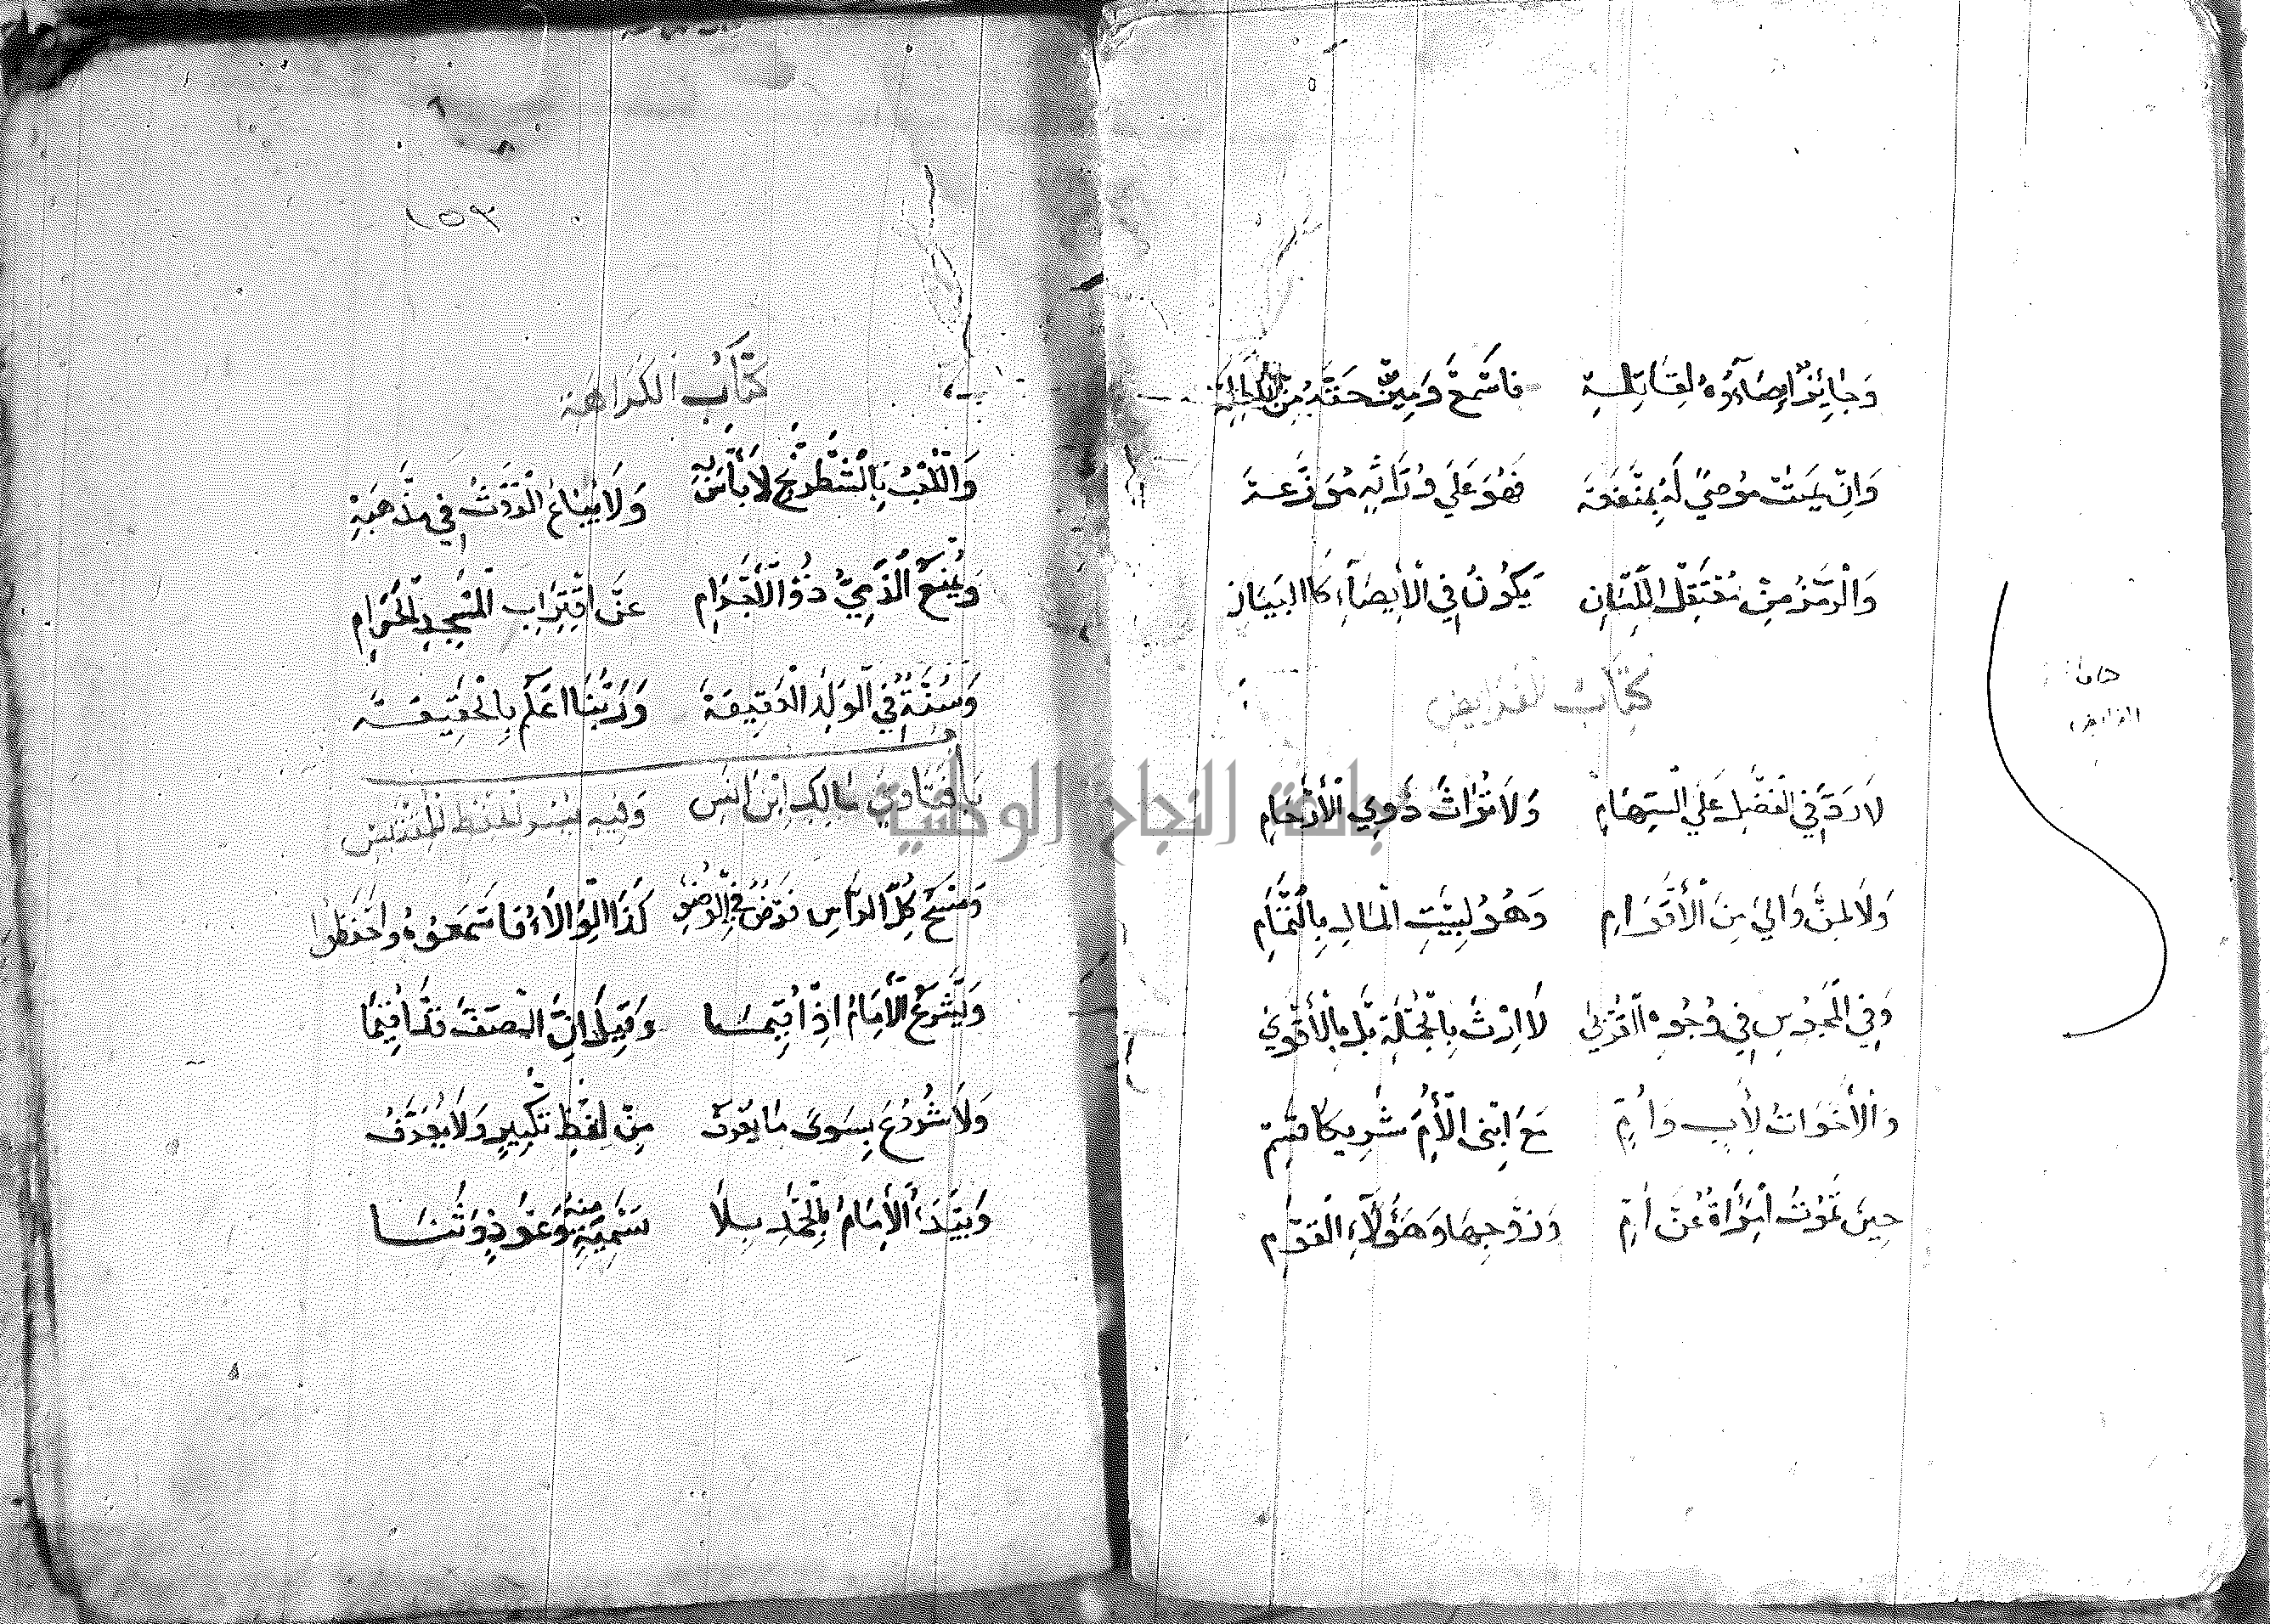 وَجَائِزٌ اِيصَآؤُهُ لِقَاتِلِهِ فَاسْمَعْ وَمَيِّزْ حَقَّهُ مِنْ بَاطِلِهِ
وَاِنْ يَمُتْ مُوصًي لَهُ بِمَنْفَعَهْ فَهْوَ عَلَي وُرَّاثِهِ مُوَزَّعَهْ
وَالْرَّمْزُ مِنْ مُعْتَقَلِ اللِّسَانِ يَكُوْنُ فِي الْاِيصَآءِ كَالبَيَانِ
كِتَابُ الفَرَايِضِ
حاما
الفرايض
لَا رَدَّ فِي الْفَضْلِ عَلَي الْسِّهَامِ وَلَا تُرَاثَ لِذَوِي الْأَرْحَامِ
وَلَا لِمَنْ وَالَي مِنَ الْأَقْوَامِ وَهُوَ لِبَيْتِ الْمَالِ بِالْتَّمَامِ
وَفِي الْمَجُوسِ فِي وُجُوهِ الْقُرْبَي لَا اِرْثَ بِالْجُمْلَةِ بَلْ بِالْأَقْوَي
وَالْأَخَوَاتُ لِأَبٍ وَأُمِّ مَعَ ابْنَي الْأُمِّ شَرِيكًا قَسِمِ
حِينَ تَمُوْتُ امْرَأَةٌ عَنْ أُمِّ وَزَوْجِهَا وَهَؤُلَآءِ الْقَوْمِ
١٥٢
كِتَابُ الكَرَاهَةِ
وَالْلَّعْبُ بِالْشَّطْرَنْجِ لَا بَأْسَ بِهِ وَلَا يُبَاعُ الْرَّوْثُ فِي مَذْهَبِهِ
وَيُمْنَعُ الْذِّمِّيُّ ذُوْ الْاَجْرَامِ عَنْ اقْتِرَابِ الْمَسْجِدِ الْحَرَامِ
وَسُنَّةٌ فِي الْوَلَدِ الْعَقِيقَةْ وَرَبُّنَا اعْلَمُ بِالْحَقِيقَةْ
بَابُ فَتَاوِي مَالِكِ ابْنِ انَسِ وَفِيهِ
وَمَسْحُ كُلِّ الرَّأْسِ فَرْضٌ فِي الْوُضُو كَذَا الْوِلَاءُ فَاسْمَعُوهُ وَاحْفَظُوا
وَيَشْرَعُ الْاِمَامُ اذْ اُقِيمَا وَقِيلَ اِنَّ الْصَفَّ
وَلَا شُرُوْعَ بِسِوَى مَا يُعْرَفُ مِنْ لَفْظِ تَكْبِيرٍ وَلَا يُعَرَّفُ
وَيَبْتَدَءُ الْاِمَامُ بِالْحَمْدِ بِلَا تَسْمِيَةٍ مِنْهُ وَعَوْذٍ وَثَنَا
جامعة النجاح الوطنية